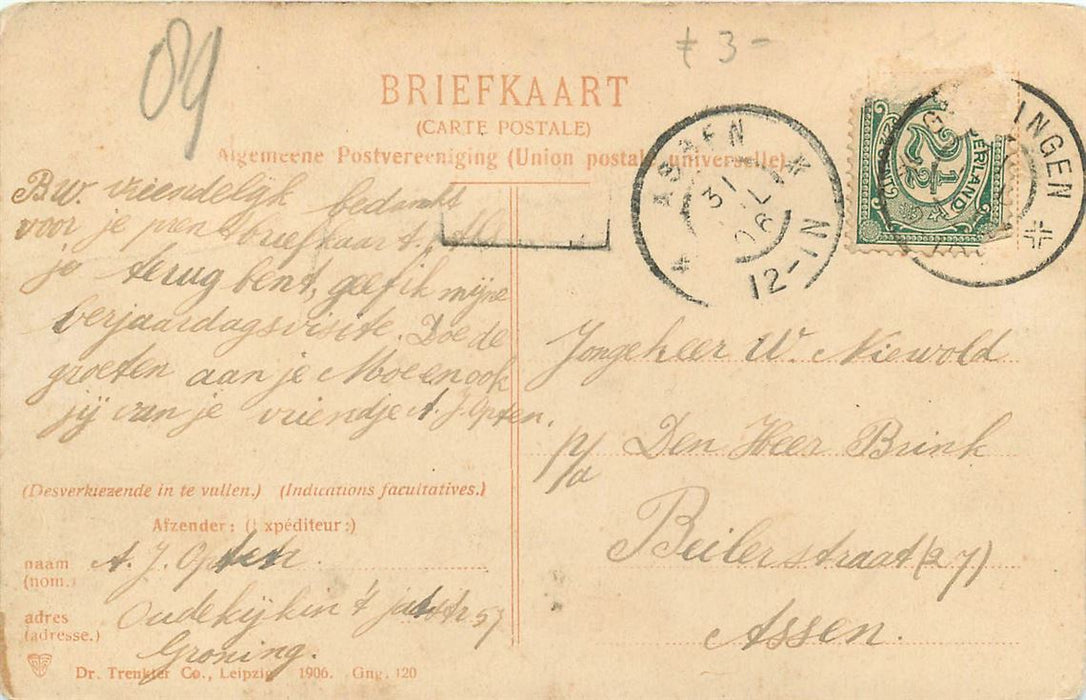 04
≠ 3-
BRIEFKAART
(CARTE POSTALE)
Algemeene Postvereeniging (Union postale universelle)
ASSEN
31 JL 06
12-1N
NINGEN
2½
CENT
B W. vriendelijk bedankt
voor je pren briefkaart. Als
je terug bent, geef ik mijne
verjaardagsvisite. Doe de
groeten aan je Moe en ook
jij van je vriendje A. J. Opten.
Jongeheer W. Niewold
p/a Den Heer Brink
Beilerstraat (a 7)
Assen.
(Desverkiezende in te vullen.) (Indications facultatives.)
Afzender: (Expéditeur:)
naam
(nom.)
A. J. Opten
adres
(adresse.)
Oude kijk in 't jatstr 57
Groning.
Dr. Trenkler Co., Leipzig 1906. Gng. 120